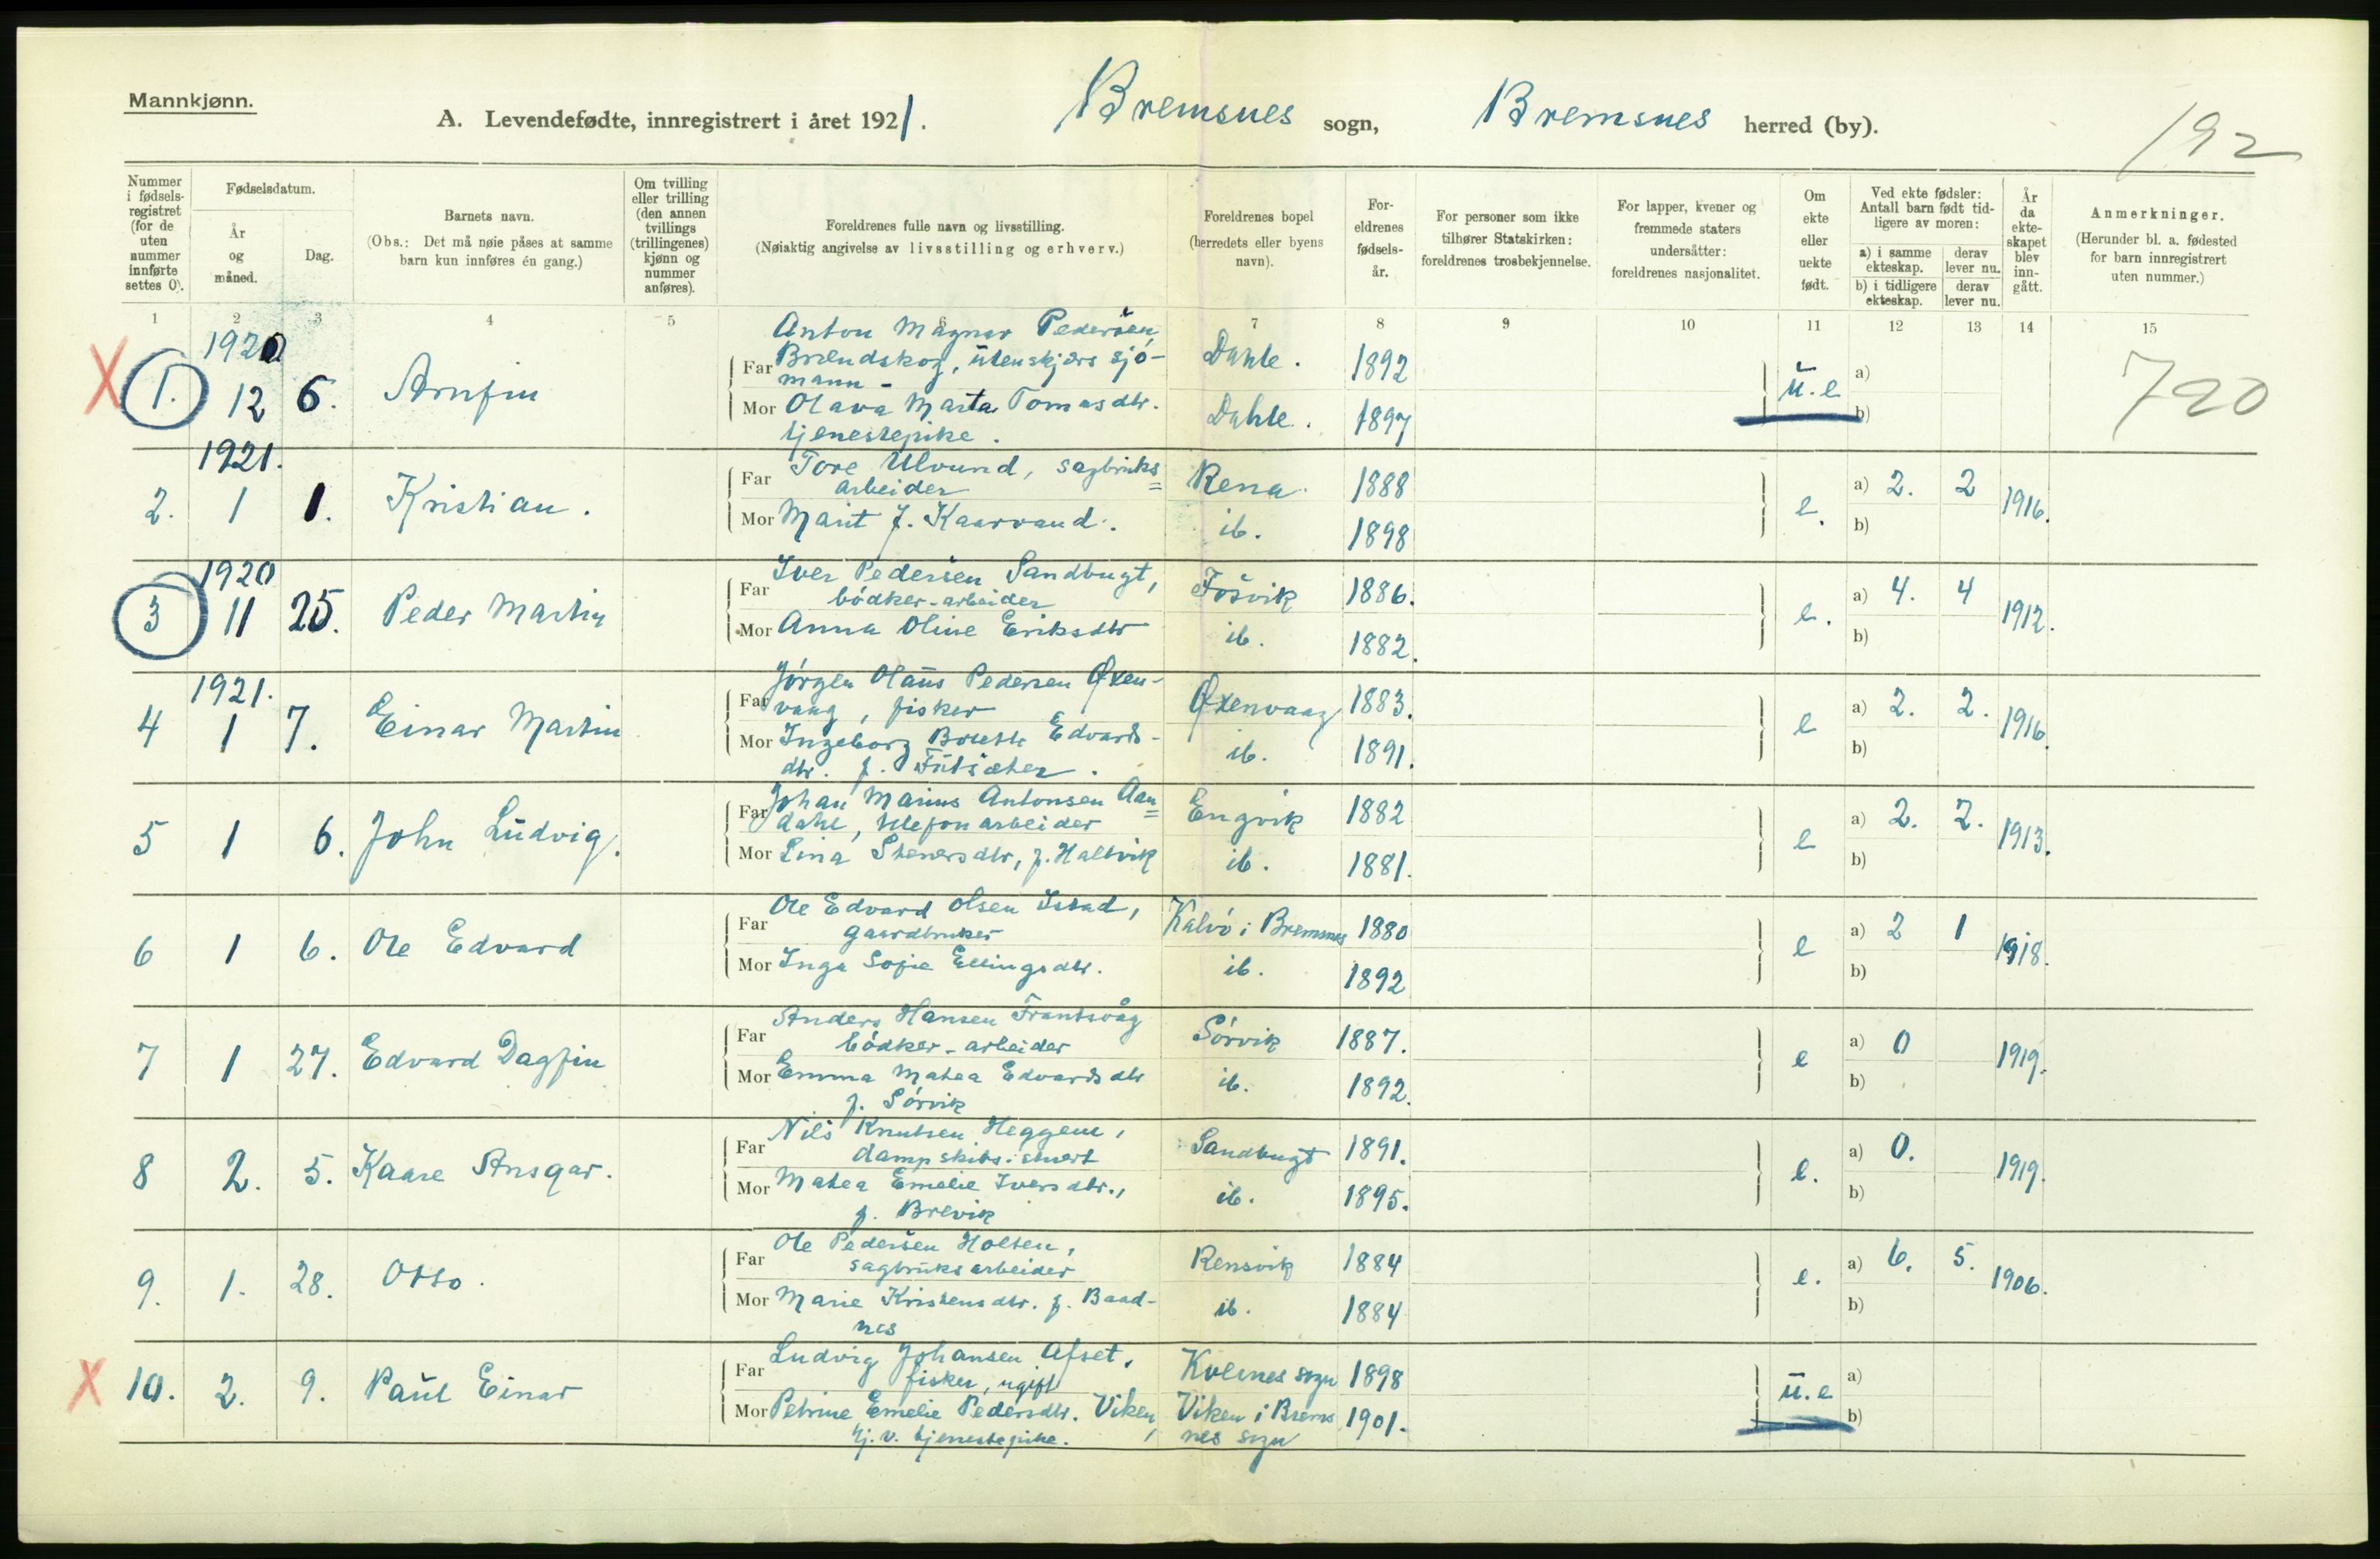 Mannkjønn.
A. Levendefødte, innregistrert i året 1921. Bremsnes sogn, Bremsnes herred (by).
192
Nummer i fødselsregistret (for de uten nummer innførte settes 0).
Fødselsdatum.
År og måned.
Dag.
Barnets navn.
(Obs.: Det må nøie påses at samme barn kun innføres én gang.)
Om tvilling eller trilling (den annen tvillings (trillingenes) kjønn og nummer anføres).
Foreldrenes fulle navn og livsstilling.
(Nøiaktig angivelse av livsstilling og erhverv.)
Foreldrenes bopel (herredets eller byens navn).
Foreldrenes fødselsår.
For personer som ikke tilhører Statskirken: foreldrenes trosbekjennelse.
For lapper, kvener og fremmede staters undersåtter: foreldrenes nasjonalitet.
Om ekte eller uekte født.
Ved ekte fødsler: Antall barn født tidligere av moren:
a) i samme ekteskap. derav lever nu.
b) i tidligere ekteskap. derav lever nu.
År da ekteskapet blev inngått.
Anmerkninger.
(Herunder bl. a. fødested for barn innregistrert uten nummer.)
1 2 3 4 5 6 7 8 9 10 11 12 13 14 15
X 1. 1920 12 6. Arnfin
Far Anton Magner Pedersen Brændskog, utenskjærs sjømann - Dahle. 1892
Mor Olava Marta Tomasdtr. tjenestepike. Dahle. 1897
u.e a) b) 720
2. 1921. 1 1. Kristian.
Far Tore Ulvund, sagbruks= arbeider Rena. 1888
Mor Marit f. Kaarvand. ib. 1898
e. a) 2. 2 b) 1916.
3 1920 11 25. Peder Martin
Far Iver Pedersen Sandbugt, bödker-arbeider Fosvik 1886.
Mor Anna Oline Eriksdtr ib. 1882.
e. a) 4. 4 b) 1912.
4 1921. 1 7. Einar Martin
Far Jørgen Olaus Pedersen Øxenvaag, fisker Øxenvaag 1883.
Mor Ingeborg Edvardsdtr. f. ib. 1891.
e a) 2. 2. b) 1916.
5 1 6. John Ludvig.
Far Johan Marius Antonsen Aan=dahl, telefonarbeider Engvik 1882
Mor Lina Stenersdtr, f. Halsvik ib. 1881.
e a) 2. 2. b) 1913.
6 1 6. Ole Edvard
Far Ole Edvard Olsen Istad, gaardbruker Kalvö i Bremsnes 1880
Mor Inga Sofie Ellingsdtr. ib. 1892
e a) 2 1 b) 1918.
7 1 27. Edvard Dagfin
Far Anders Hansen Frantsvåg bödker-arbeider Sörvik 1887.
Mor Emma Matea Edvardsdtr f. Sörvik ib. 1892.
e a) 0 b) 1919.
8 2. 5. Kaare Ansgar.
Far Nils Knutsen Heggem, dampskibs-stuert Sandbugt 1891.
Mor Matea Emelie Iversdtr., f. Brevik ib. 1895.
e. a) 0. b) 1919.
9. 1. 28. Otto.
Far Ole Pedersen Holten, sagbruksarbeider Rensvik 1884
Mor Marie Kristensdtr. f. Baadnes ib. 1884
e. a) 6. 5. b) 1906.
X 10. 2. 9. Paul Einar
Far Ludvig Johansen Afset, fisker, ugift Kvernes sogn 1898
Mor Petrine Emelie Pedersdtr. Viken, hj. v. tjenestepike. Viken i Bremsnes sogn 1901.
u.e a) b)